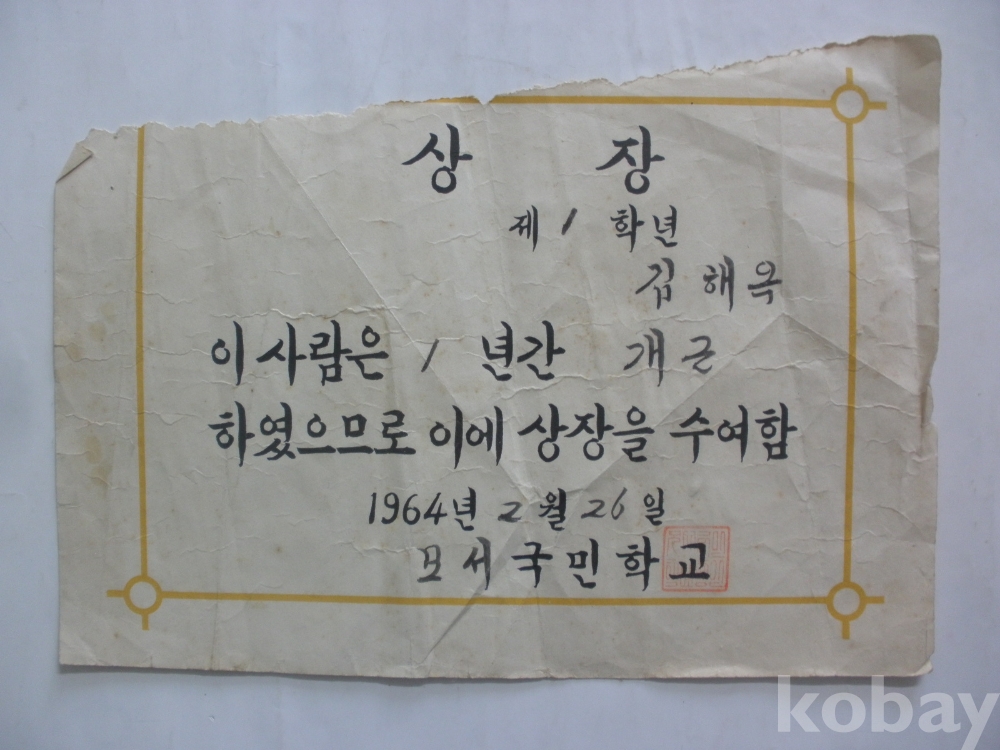 상 장
제 1 학년
김 해 옥
이 사람은 1 년간 개 근
하였으므로 이에 상장을 수여함
1964년 2 월 26 일
모 서 국 민 학 교
kobay